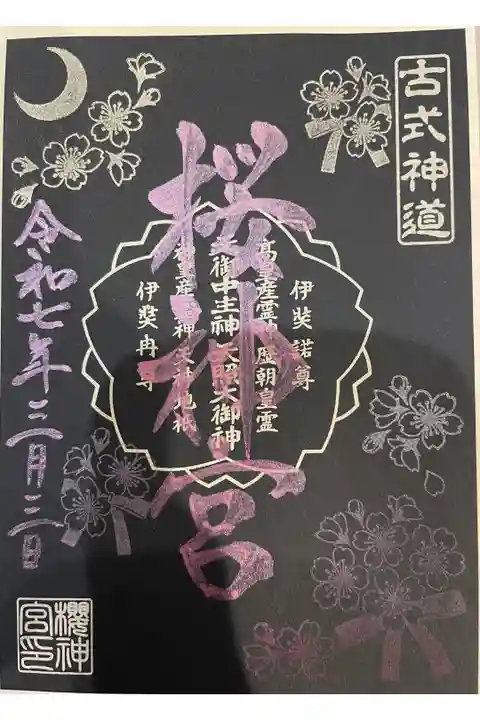 古式神道
桜神宮
伊奘諾尊
高皇産霊神 歴朝皇霊
天御中主神 天照大御神
神皇産霊神 天神地祇
伊奘冉尊
令和七年三月三日
櫻神宮印